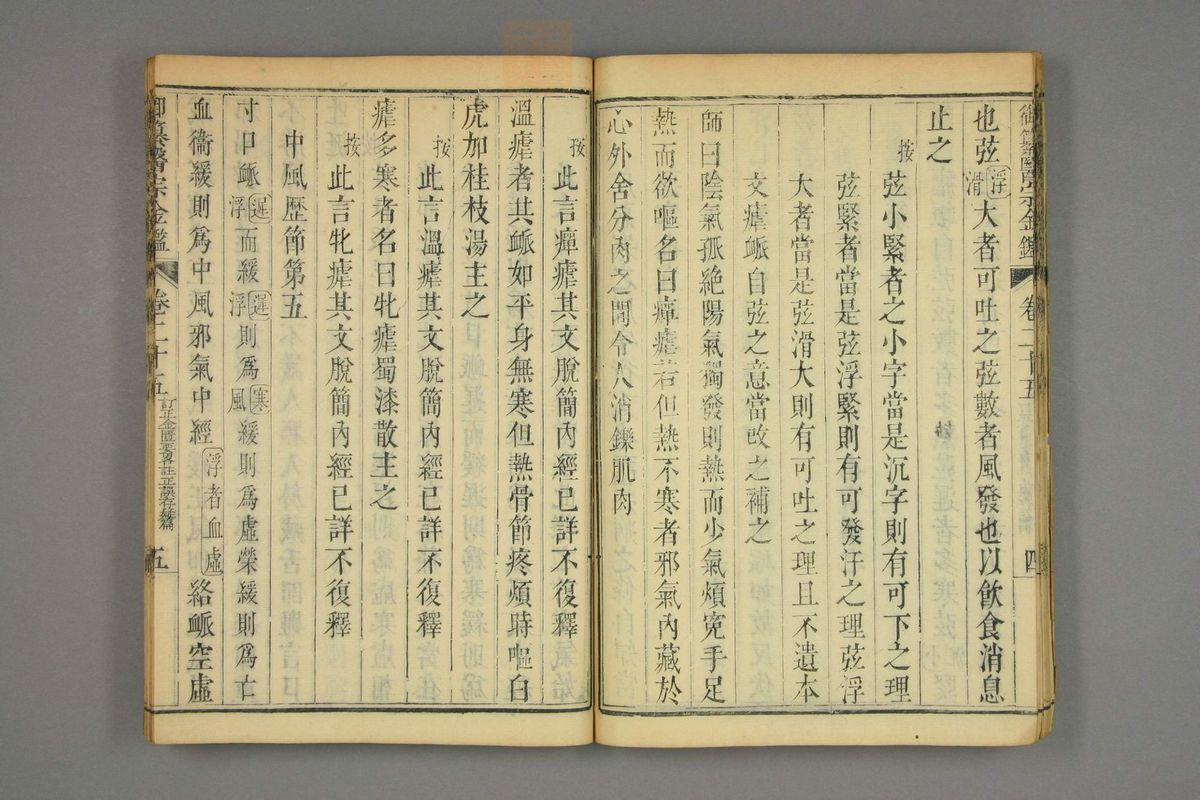 御纂醫宗金鑑 卷二十五 四
也弦浮滑大者可吐之弦數者風發也以飲食消息
止之
按弦小緊者之小字當是沉字則有可下之理
弦緊者當是弦浮緊則有可發汗之理弦浮
大者當是弦滑大則有可吐之理且不遺本
文瘧衇自弦之意當改之補之
師曰陰氣孤絕陽氣獨發則熱而少氣煩寃手足
熱而欲嘔名曰癉瘧若但熱不寒者邪氣內藏於
心外舍分肉之間令人消鑠肌肉
按此言癉瘧其文脫簡內經已詳不復釋
溫瘧者其衇如平身無寒但熱骨節疼煩時嘔白
虎加桂枝湯主之
按此言溫瘧其文脫簡內經已詳不復釋
瘧多寒者名曰牝瘧蜀漆散主之
按此言牝瘧其文脫簡內經已詳不復釋
中風歷節第五
寸口衇遲浮而緩遲浮則爲寒風緩則爲虛榮緩則爲亡
血衞緩則爲中風邪氣中經浮者血虛絡衇空虛
御纂醫宗金鑑 卷二十五 訂正金匱要畧註正誤存疑篇 五